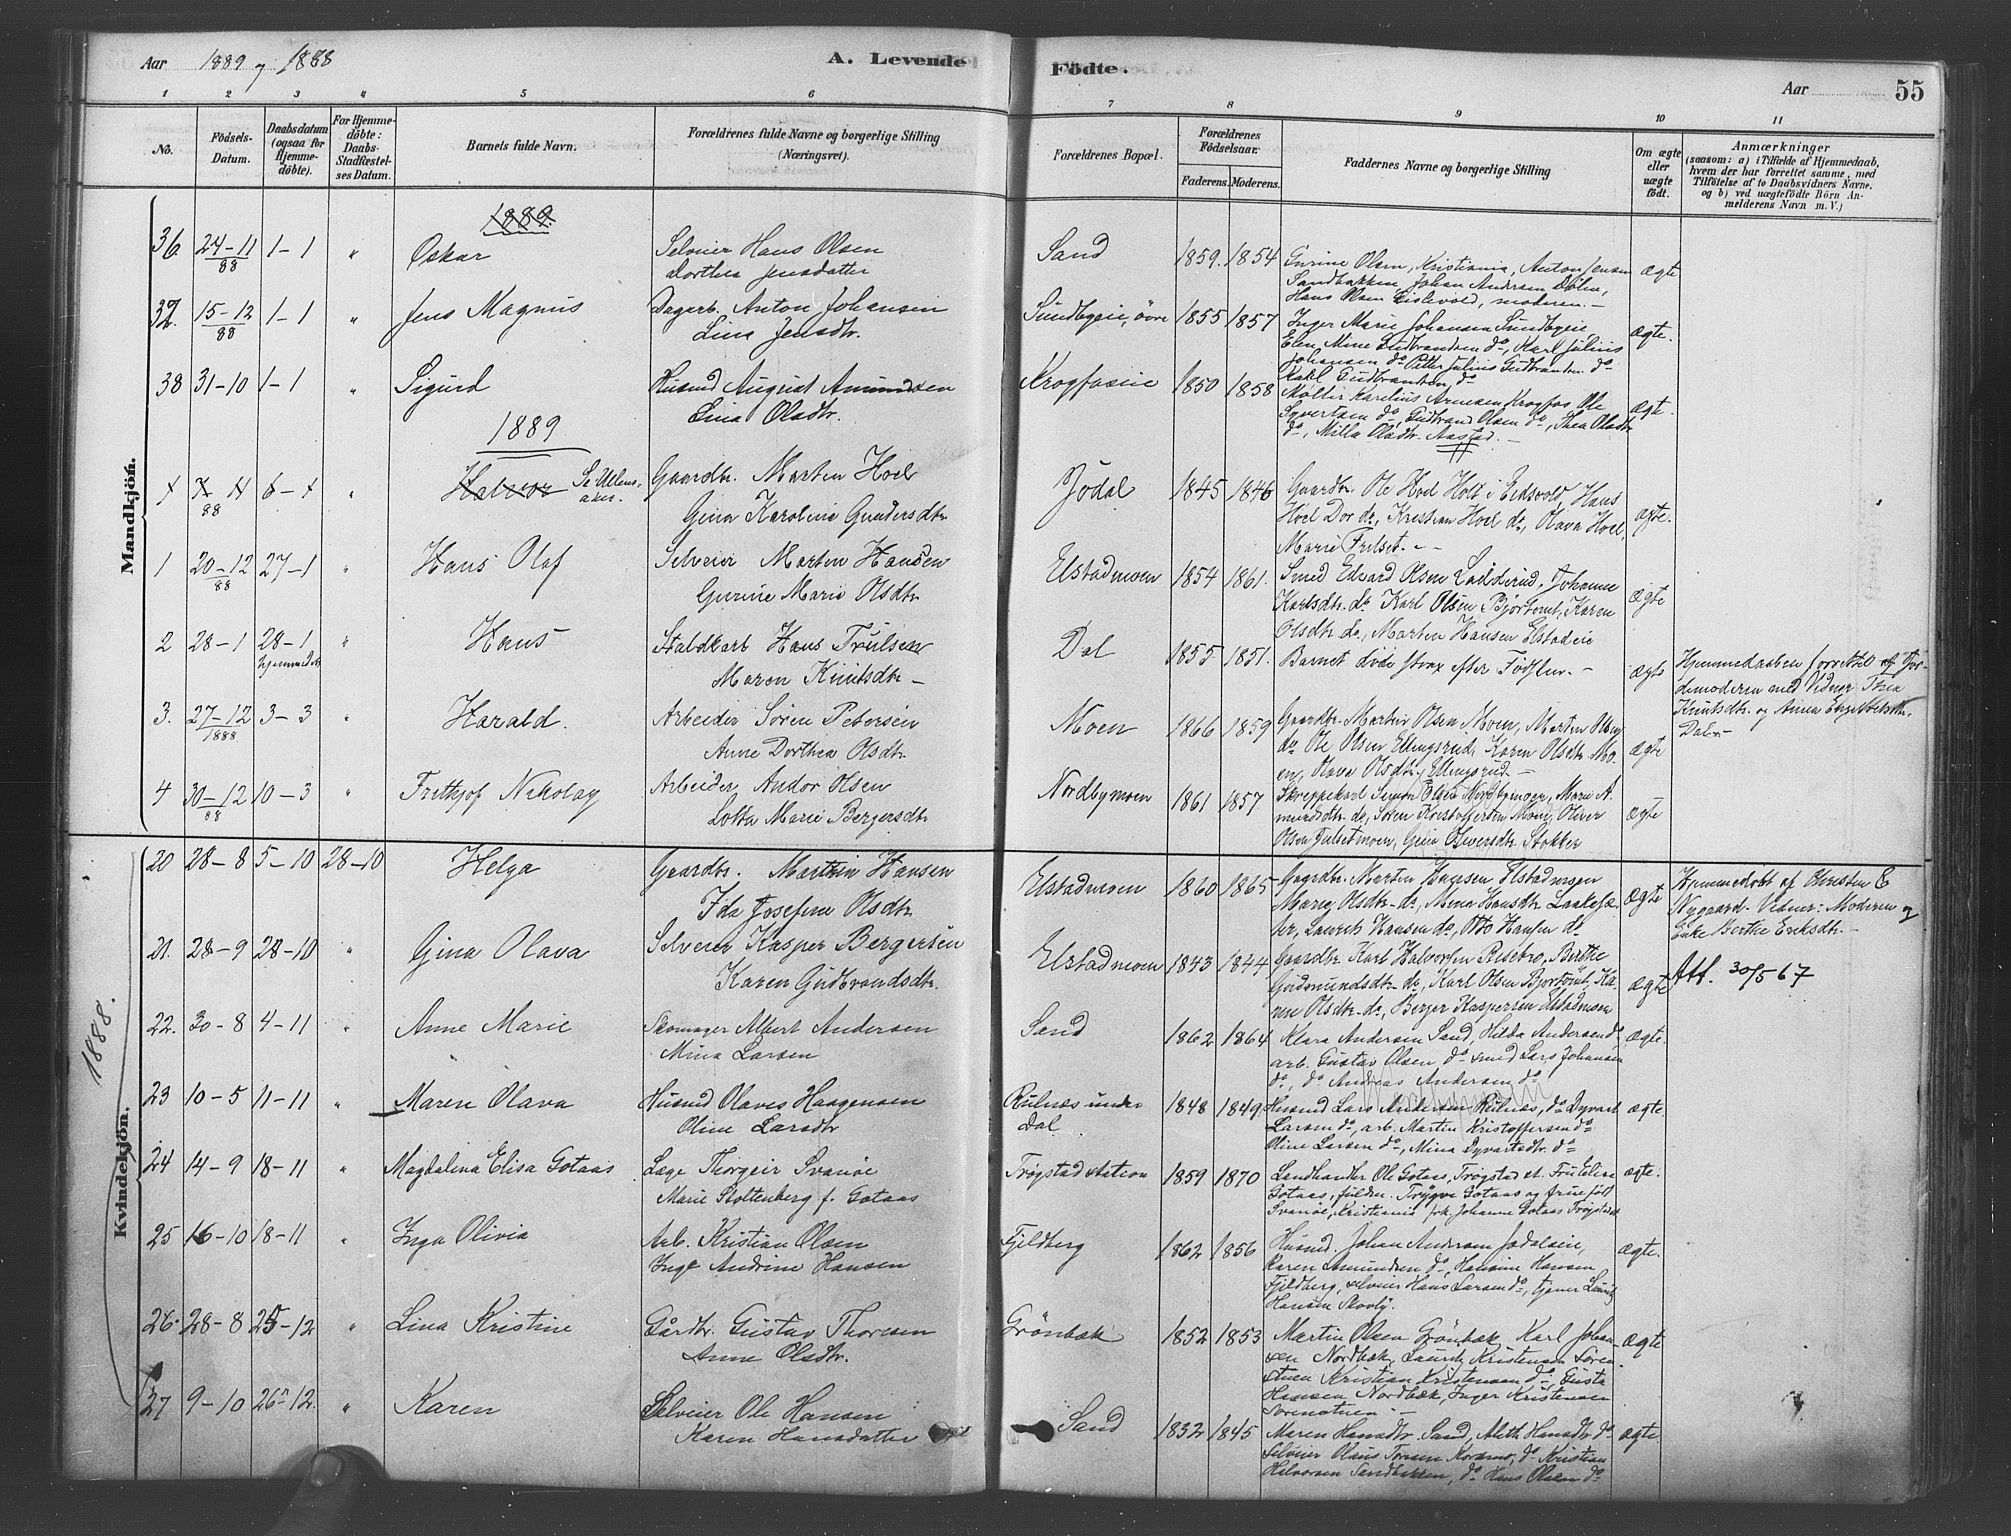 Aar 1889 og 1888
A. Levende Födte.
Aar
55
1 2 3 4 5 6 7 8 9 10 11
No.
Födsels-Datum.
Daabsdatum (ogsaa for Hjemme-döbte).
For Hjemme-döbte: Daabs-Stadfæstel-ses Datum.
Barnets fulde Navn.
Forældrenes fulde Navne og borgerlige Stilling (Næringsvei).
Forældrenes Bopæl.
Forældrenes Födselsaar.
Faderens. Moderens.
Faddernes Navne og borgerlige Stilling
Om ægte eller uægte födt.
Anmærkninger
(saasom: a) i Tilfælde af Hjemmedaab,
hvem der har forrettet samme, med
Tilföielse af to Daabsvidners Navne.
og b) ved uægtefödte Börn An-
melderens Navn m. V.)
Mandkjön.
1889.
36. 24-11 88 1-1 " Oskar
Selveier Hans Olsen
Dorthea Jensdatter
Sand 1859. 1854
Gurine Olsen, Kristiania, Anton Jensen
Sandbakken, Johan Andersen Dölen,
Hans Olsen Eislevold, moderen. –
ægte
37. 15-12 88 1-1 " Jens Magnus
Dagarb. Anton Johansen
Lina Jensdtr.
Sundbyeie, övre 1855 1857
Inger Marie Johansen Sundbyeie
Elen Mine Gudbrandsen do, Karl Julius
Johansen do Petter Julius Gudbrandsen do
Karl Gudbrandsen do
ægte.
38 31-10 1-1 " Sigurd
Husmd August Amundsen
Lina Olsdtr.
Krogfoseie 1850 1858
Möller Karelius Arnesen Krogfos Ole
Syvertsen do, Gudbrand Olsen do, Thea Olsdtr
do, Milla Olsdtr. Aastad. –
ægte.
1889
1 7-11 88 6-1 " Halvor Se Ullens-aker.
Gaardbr. Marten Hoel
Gina Karoline Gundersdtr
Jödal 1845 1846
Gaardbr. Ole Hoel Holt i Eidsvold, Hans
Hoel Dor do, Kristian Hoel do, Olava Hoel,
Marie Frilset. –
ægte.
1 20-12 88 27-1 " Hans Olaf
Selveier Marten Hansen
Gurine Marie Olsdtr
Elstadmoen 1854 1861.
Smed Edvard Olsen Lödderud, Johanne
Karlsdtr. do Karl Olsen Bjørtomt, Karen
Olsdtr do, Marten Hansen Elstadeie
ægte
2 28-1 28-1 hjemmedöbt " Hans
Staldkarl Hans Trulsen
Maren Knutsdtr –
Dal 1855 1851.
Barnet döde strax efter Födslen. –
ægte
Hjemmedaaben forrettet af Jor-
demoderen med Vidner Thea
Knutsdtr. og Anna Engebretsdtr.
Dal –
3. 27-12 1888 3-3 " Harald.
Arbeider Sören Petersen
Anne Dorthea Olsdtr
Moen 1866 1859
Gaardbr. Martin Olsen Moen, Marten Olsen
do Ole Olsen Ellingsrud, Karen Olsdtr Mo-
en, Olava Olsdtr, Ellingsrud –
ægte
4 30-12 88 10-3 " Frithjof Nikolay
Arbeider Andor Olsen
Lotta Marie Bergersdtr
Nordbymoen 1861 1857
Skreppekarl Simon Olsen Nordbymoen, Marie A-
mundsdtr do, Sören Kristoffersen Moen, Oliver
Olsen Julsetmoen, Gina Olversdtr Stokker
ægte
1888.
Kvindekjön.
20 28-8 5-10 28-10 Helga
Gaardbr. Martin Hansen
Ida Josefine Olsdtr
Elstadmoen 1860 1865
Gaardbr. Marten Hansen Elstadmoen
Marie Olsdtr do, Mina Hansdtr Laalesæ-
ter, Laurits Hansen do, Otto Hansen do
ægte
Hjemmedöbt af Christen E
Nygaard. Vidner: Moderen og
Enke Berthe Eriksdtr. –
21. 28-9 28-10 " Gina Olava
Selveier Kasper Bergersen
Karen Gudbrandsdtr.
Elstadmoen 1843 1844
Gaardbr Karl Halvorsen Risebro, Berthe
Gudmundsdtr do, Karl Olsen Bjørtomt, Ka-
ren Olsdtr do, Berger Kaspersen Elstadmoen
ægte
Att. 30/5 67
22. 30-8 4-11 " Anne Marie
Skomager Albert Andersen
Mina Larsen
Sand 1862 1864
Klara Andersen Sand, Hilda Andersen do
arb. Gustav Olsen do smed Lars Johansen
do, do Andreas Andersen do
ægte.
23 10-5 11-11 " Maren Olava
Husmd Olaves Haagensen
Oline Larsdtr
Rulnæs under Dal 1848 1849
Husmd Lars Andersen Rulnæs, do Dyvart
Larsen do, arb. Martin Kristoffersen do
Oline Larsen do, Mina Dyvartsdtr. do
ægte.
24 14-9 18-11 " Magdalena Elisa Gotaas
Læge Thorgeir Svanöe
Marie Stoltenberg f. Gotaas
Trögstad station 1859 1870
Landhandler Ole Gotaas, Trögstad st. Fru Elise
Gotaas, fuldm. Trygve Gotaas og frue föd
Svanöe, Kristiania frk Johanne Gotaas Trögstad
ægte.
25 16-10 18-11 " Inga Olivia
Arb. Kristian Olsen
Inge Andrine Hansen
Fjeldberg 1862 1856
Husmd. Johan Andersen Jödalseie,
Karen Amundsen do, Hansine Hansen
Fjeldberg, selveier Hans Larsen do, tjener Laurits
Hansen Skovly.
ægte.
26. 28-8 25-12 " Lina Kristine
Gårdbr. Gustav Thoresen
Anne Olsdtr.
Grönbæk 1852 1853
Martin Olsen Grönbæk, Karl Johan-
sen Nordbæk, Laurits Kristensen Sören-
stuen Kristian Kristensen do, Gusta
Hansen Nordbæk, Inger Kristensen
Sörenstuen –
ægte
27 9-10 26-12. " Karen
Selveier Ole Hansen
Karen Hansdatter
Sand 1832 1845
Maren Hansdtr Sand, Aleth Hansdtr do
Selveier Olaus Tonsen Korsmo, do Kristian
Halvorsen Sandbækken, do Hans Olsen do
ægte.